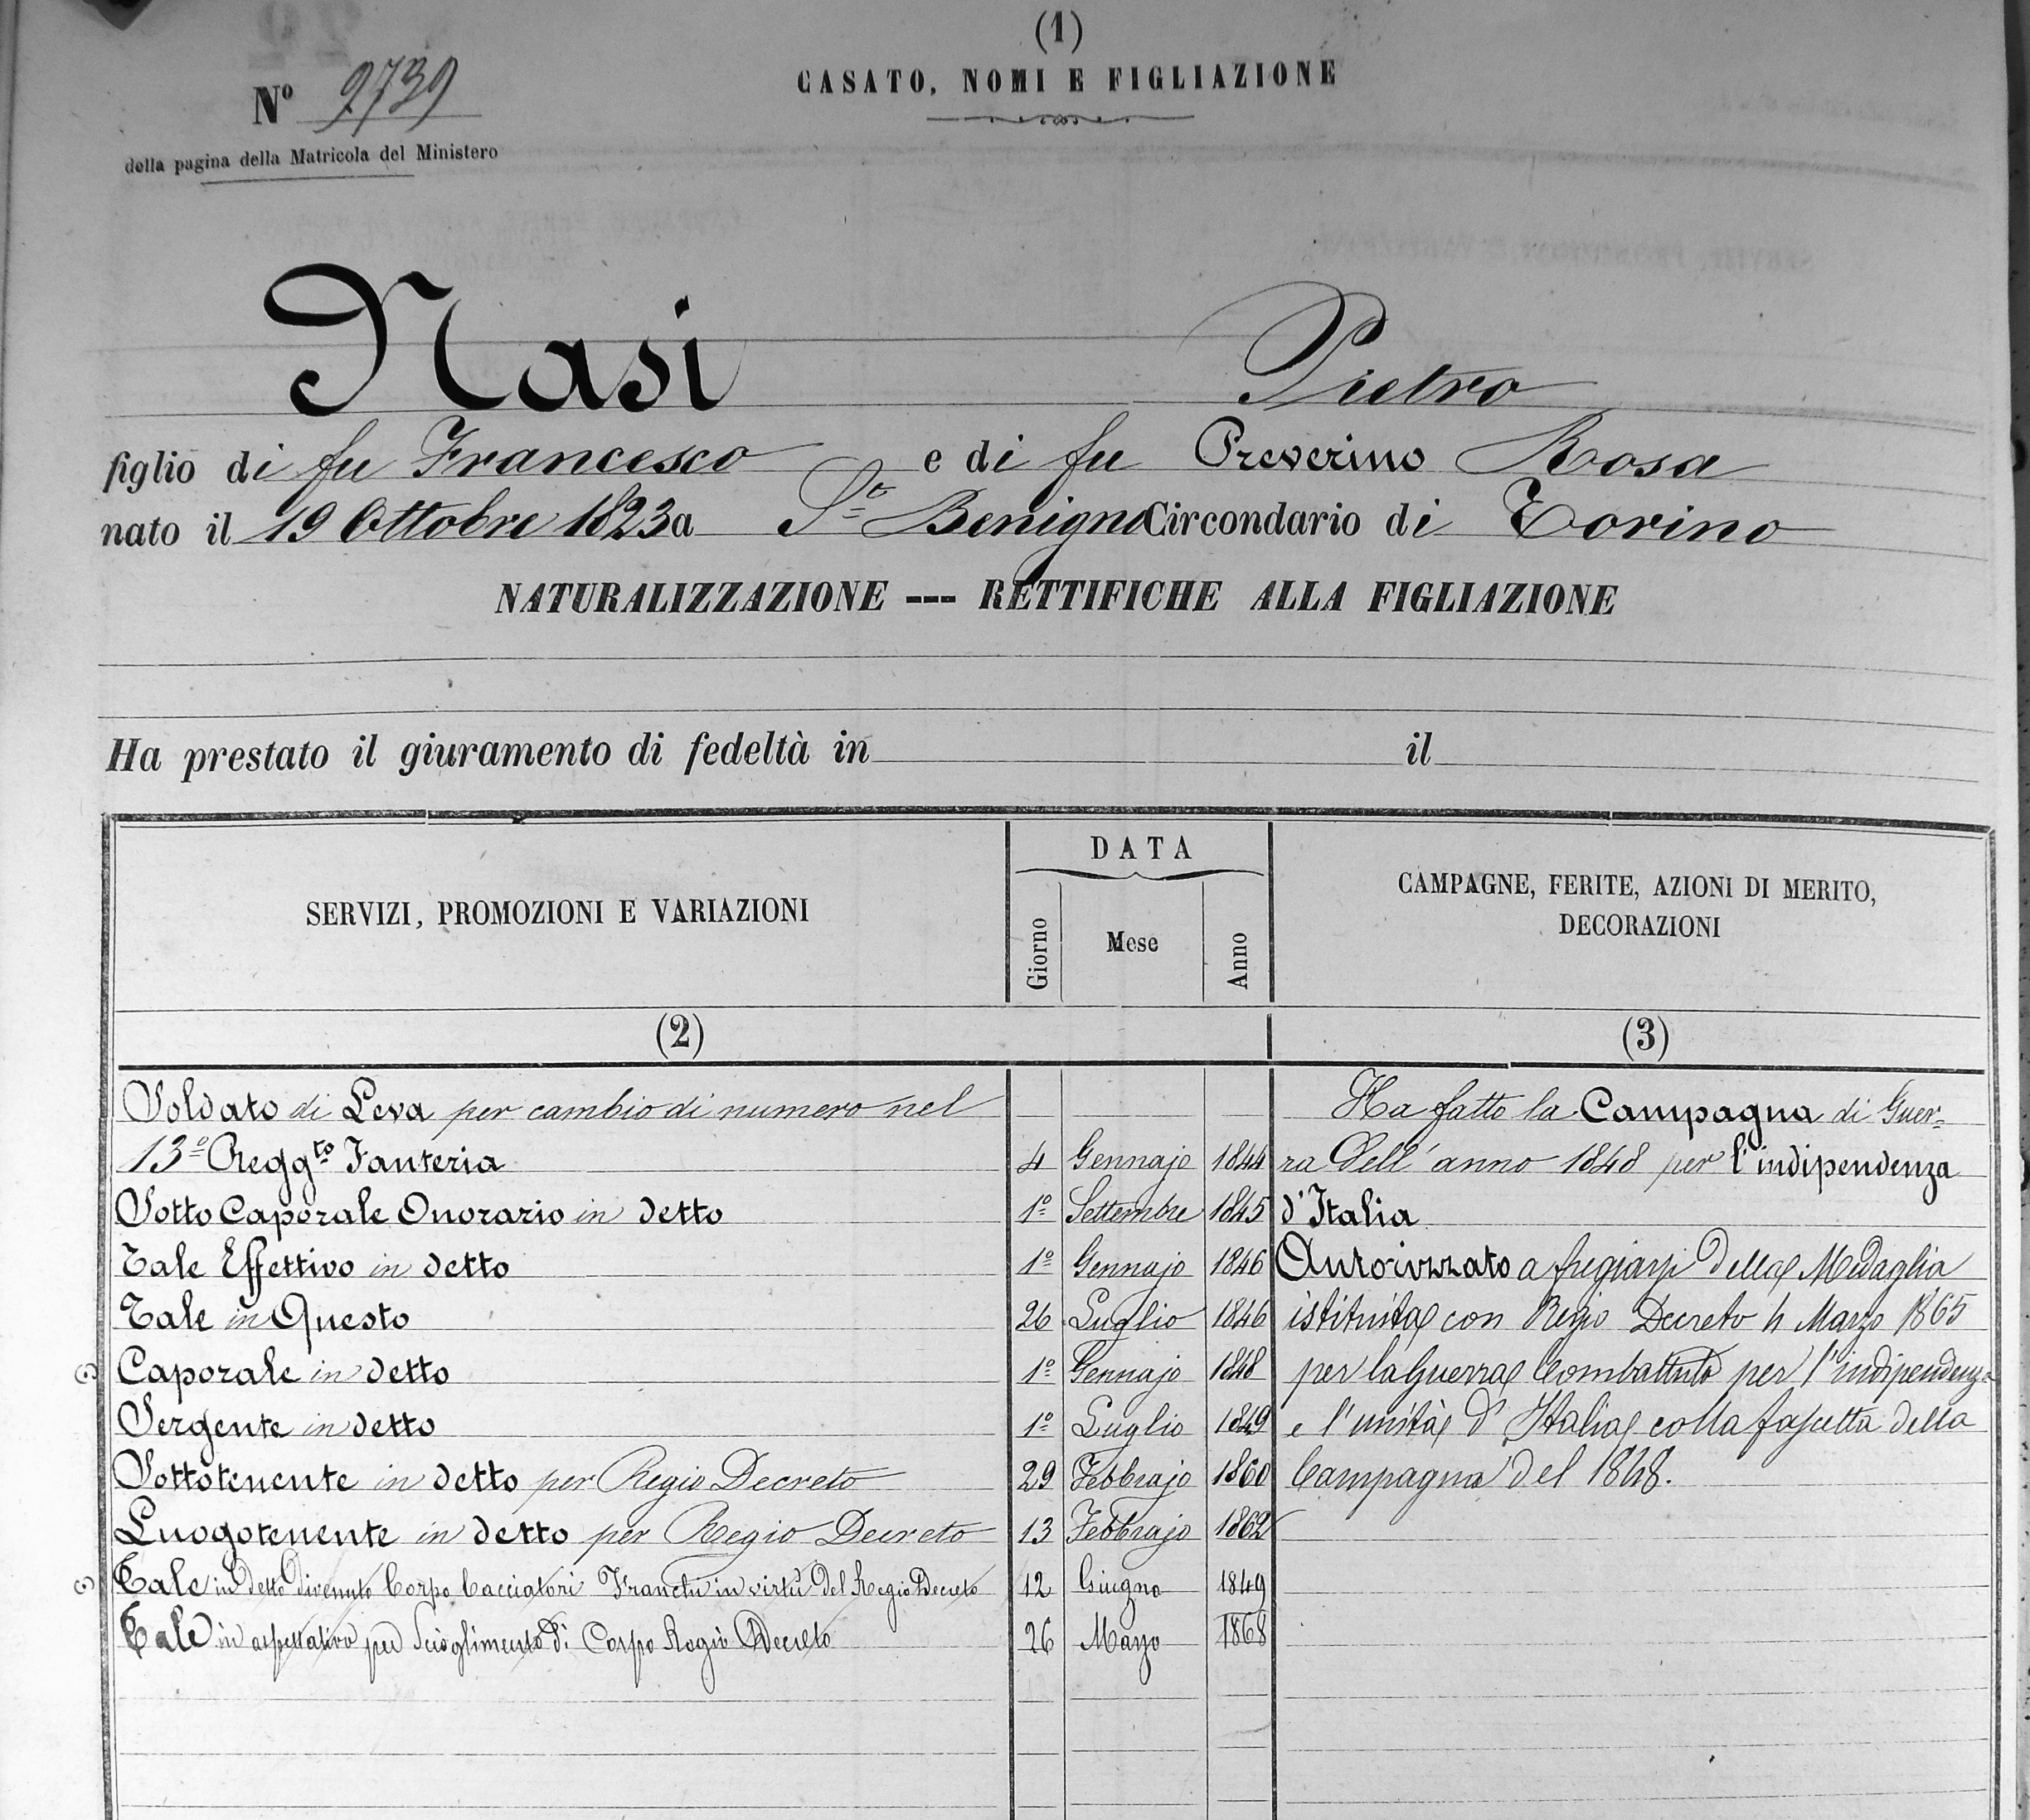 (1)
CASATO, NOMI E FIGLIAZIONE
Nº 2739
della pagina della Matricola del Ministero
Nasi Pietro
figlio di fu Francesco e di fu Preverino Rosa
nato il 19 Ottobre 1823 a Sⁿ Benigno Circondario di Torino
NATURALIZZAZIONE --- RETTIFICHE ALLA FIGLIAZIONE
Ha prestato il giuramento di fedeltà in il
SERVIZI, PROMOZIONI E VARIAZIONI
DATA
Giorno Mese Anno
CAMPAGNE, FERITE, AZIONI DI MERITO,
DECORAZIONI
(2) (3)
Soldato di Leva per cambio di numero nel
13º Reggto Fanteria 4 Gennajo 1844
Sotto Caporale Onorario in detto 1º Settembre 1845
Tale Effettivo in detto 1º Gennajo 1846
Tale in Questo 26 Luglio 1846
Caporale in detto 1º Gennajo 1848
Sergente in detto 1º Luglio 1849
Sottotenente in detto per Regio Decreto 29 Febbrajo 1860
Luogotenente in detto per Regio Decreto 13 Febbrajo 1862
Tale in detto divenuto Corpo Cacciatori Franchi in virtù del Regio Decreto 12 Giugno 1849
Tale in aspettativa per Scioglimento di Corpo Regio Decreto 26 Marzo 1868
Ha fatto la Campagna di Guer=
ra Dell' anno 1848 per l'indipendenza
d'Italia
Autorizzato a fregiarsi della Medaglia
istituita con Regio Decreto 4 Marzo 1865
per la Guerra Combattuta per l'indipendenza
e l'unità d'Italia colla fascetta della
Campagna del 1848.